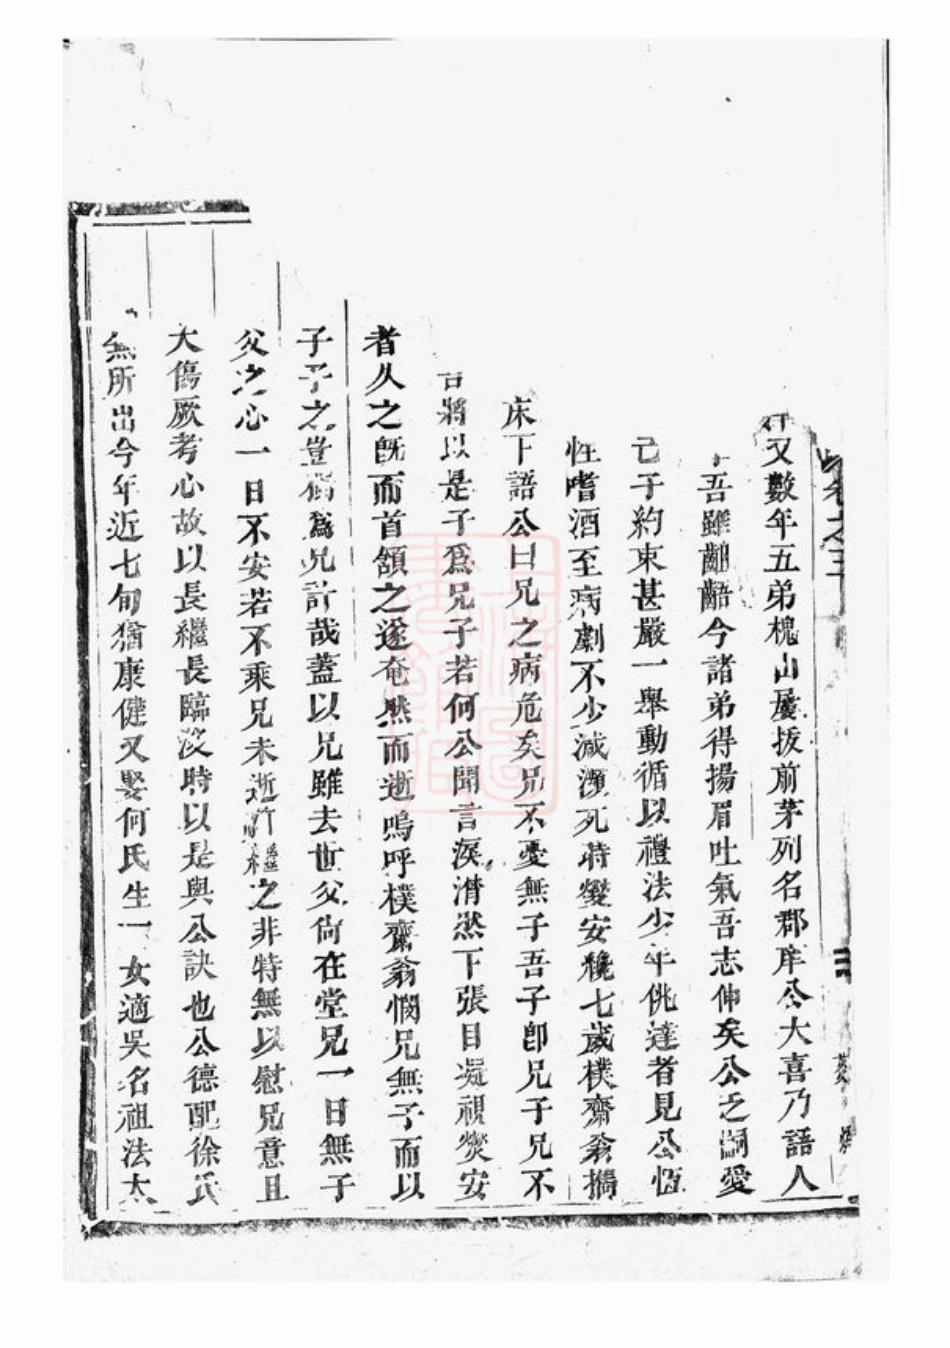 卷之三
又數年五弟槐山屢拔前茅列名郡庠公大喜乃語人
吾雖齟齬今諸弟得揚眉吐氣吾志伸矣公乏嗣愛
己子約束甚嚴一舉動循以禮法少年佻達者見公恆
性嗜酒至病劇不少減瀕死時燮安纔七歲樸齋翁攜
床下語公曰兄之病危矣兄不憂無子吾子卽兄子兄不
言將以是子爲兄子若何公聞言淚潸然下張目凝視燮安
者久之旣而首頷之遂奄然而逝嗚呼樸齋翁憫兄無子而以
子子之豈獨爲兄計哉蓋以兄雖去世父尙在堂兄一日無子
父之心一日不安若不乘兄未逝繼之非特無以慰兄意且
大傷厥考心故以長繼長臨沒時以是與公訣也公德配徐氏
無所出今年近七旬猶康健又娶何氏生一女適吳名祖法太